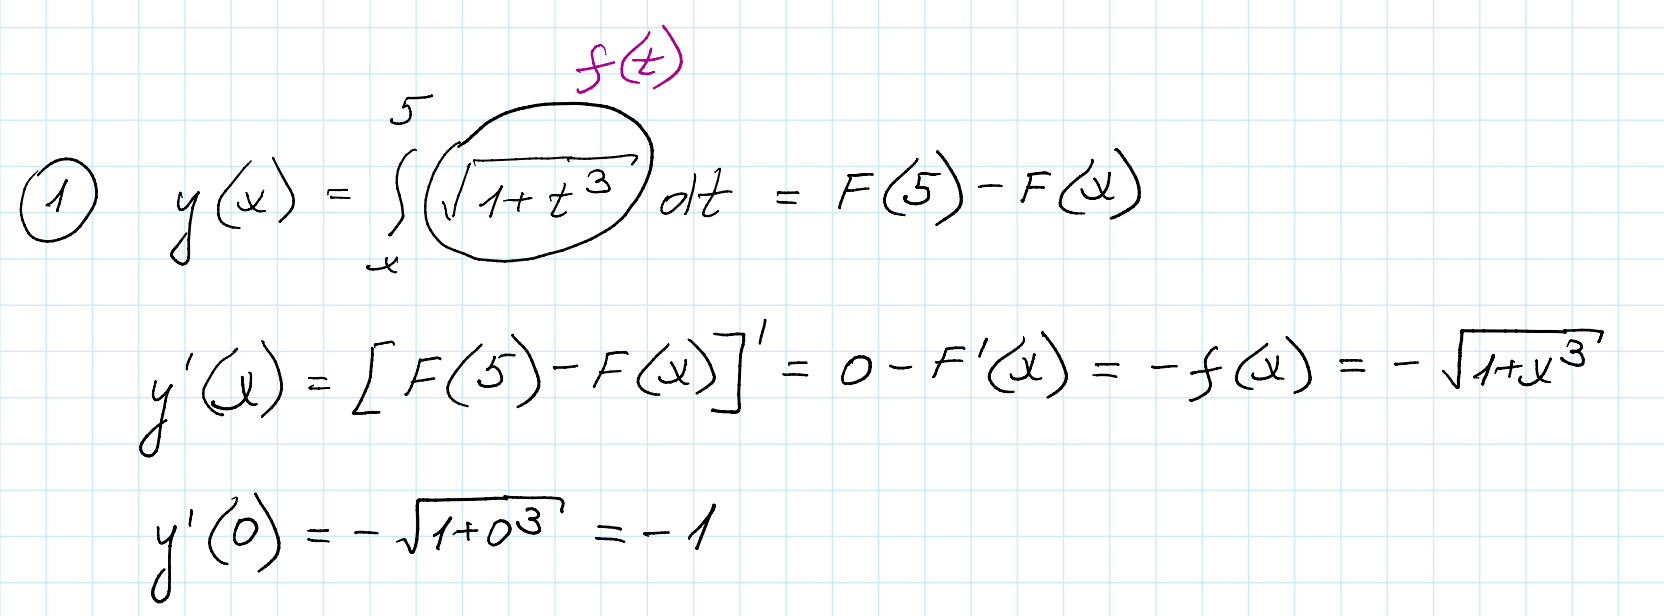 f(t)
① y(x) = ∫ₓ⁵ √(1+t³) dt = F(5) - F(x)
y'(x) = [F(5) - F(x)]' = 0 - F'(x) = -f(x) = -√(1+x³)
y'(0) = -√(1+0³) = -1